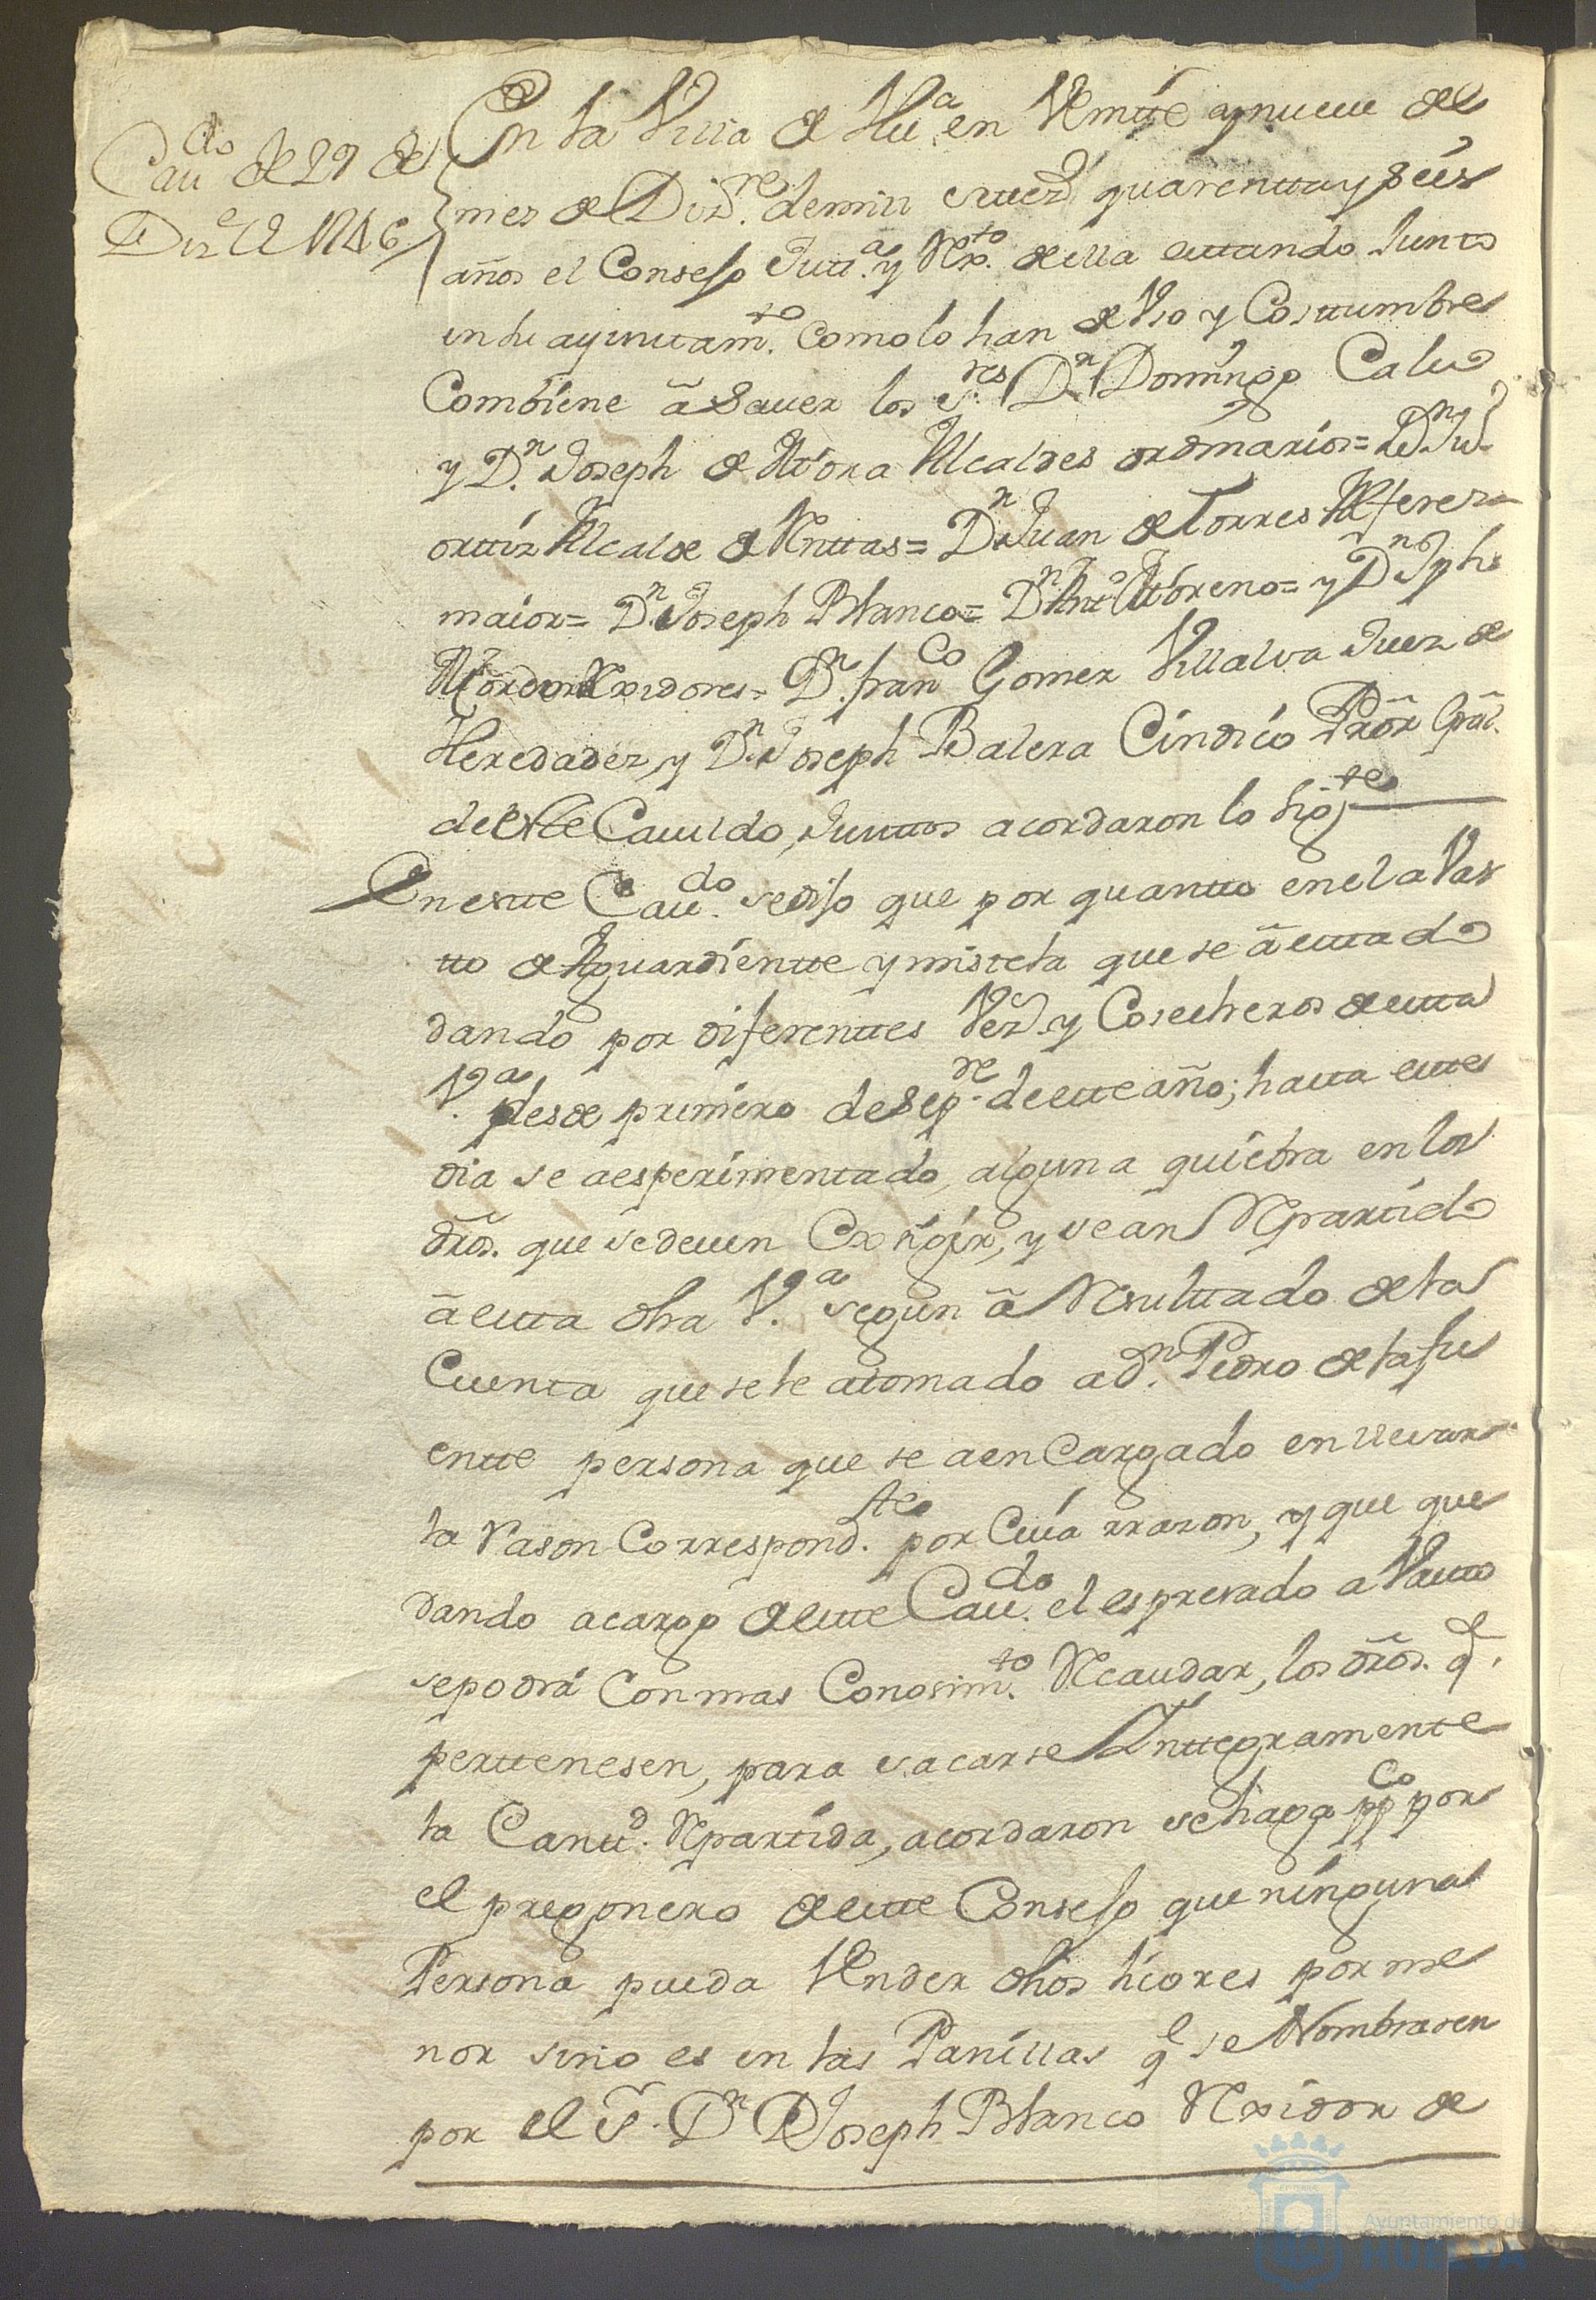 Cau.do de 29 de
Diz.e de 1746
En la Villa de Hu.a en Veintte y nueve de
mes de Diz.re de mill settez.s quarentta y seis
años el Consejo Jutt.a y Rex.to de ella estando Junto
en su ayunttam.to como lo han de Uso y Costtumbre
Combiene â Saver los S.res D.n Domingo
y D.n Joseph de Mora Alcaldes ordinarios= D.n Ju.o
orttiz Alcalde de Renttas= D.n Juan de Torres Alferez
maior= D.n Joseph Blanco= D.n Antt.o Moreno= y D.n Jph
Rexidores= D.n fran.co Gomez Villalva Juez de
Heredadez, y D.n Joseph Balera Cindico Prôr Grâl.
de este Cauildo, Junttos acordaron lo sig.te
En estte Cau.do se dijo que por quantto en el aVas
tto de Aguardientte y mistela que se â esttado
dando por diferenttes Vez.s y Cosecheros de estta
V.a desde primero de Sep.re de estte año; hasta estte
dia se a esperimentado, alguna quiebra en los
drôs. que se deven Exsigir, y se an Repartido
â estta dha V.a segun â Resulttado de la
Cuenta que se le a tomado a D.n Pedro de la fu
entte persona que se a en Cargado en llevar
la Rason Correspond.te por Cuia rrazon, y que que
dando a cargo de estte Cau.do el espresado aVastto
se podrá Con mas Conosim.to Recaudar, los drôs. q.e
perttenesen, para sacarse Inttegramente
la Cantt.d Repartida, acordaron se haga pp.co por
el pregonero de estte Consejo que ninguna
Persona pueda Vender dhôs licores por me
nor sino es en las Panillas q.e se Nombrasen
por el S.r D.n Joseph Blanco Rexidor de
Ayuntamiento de
HUELVA